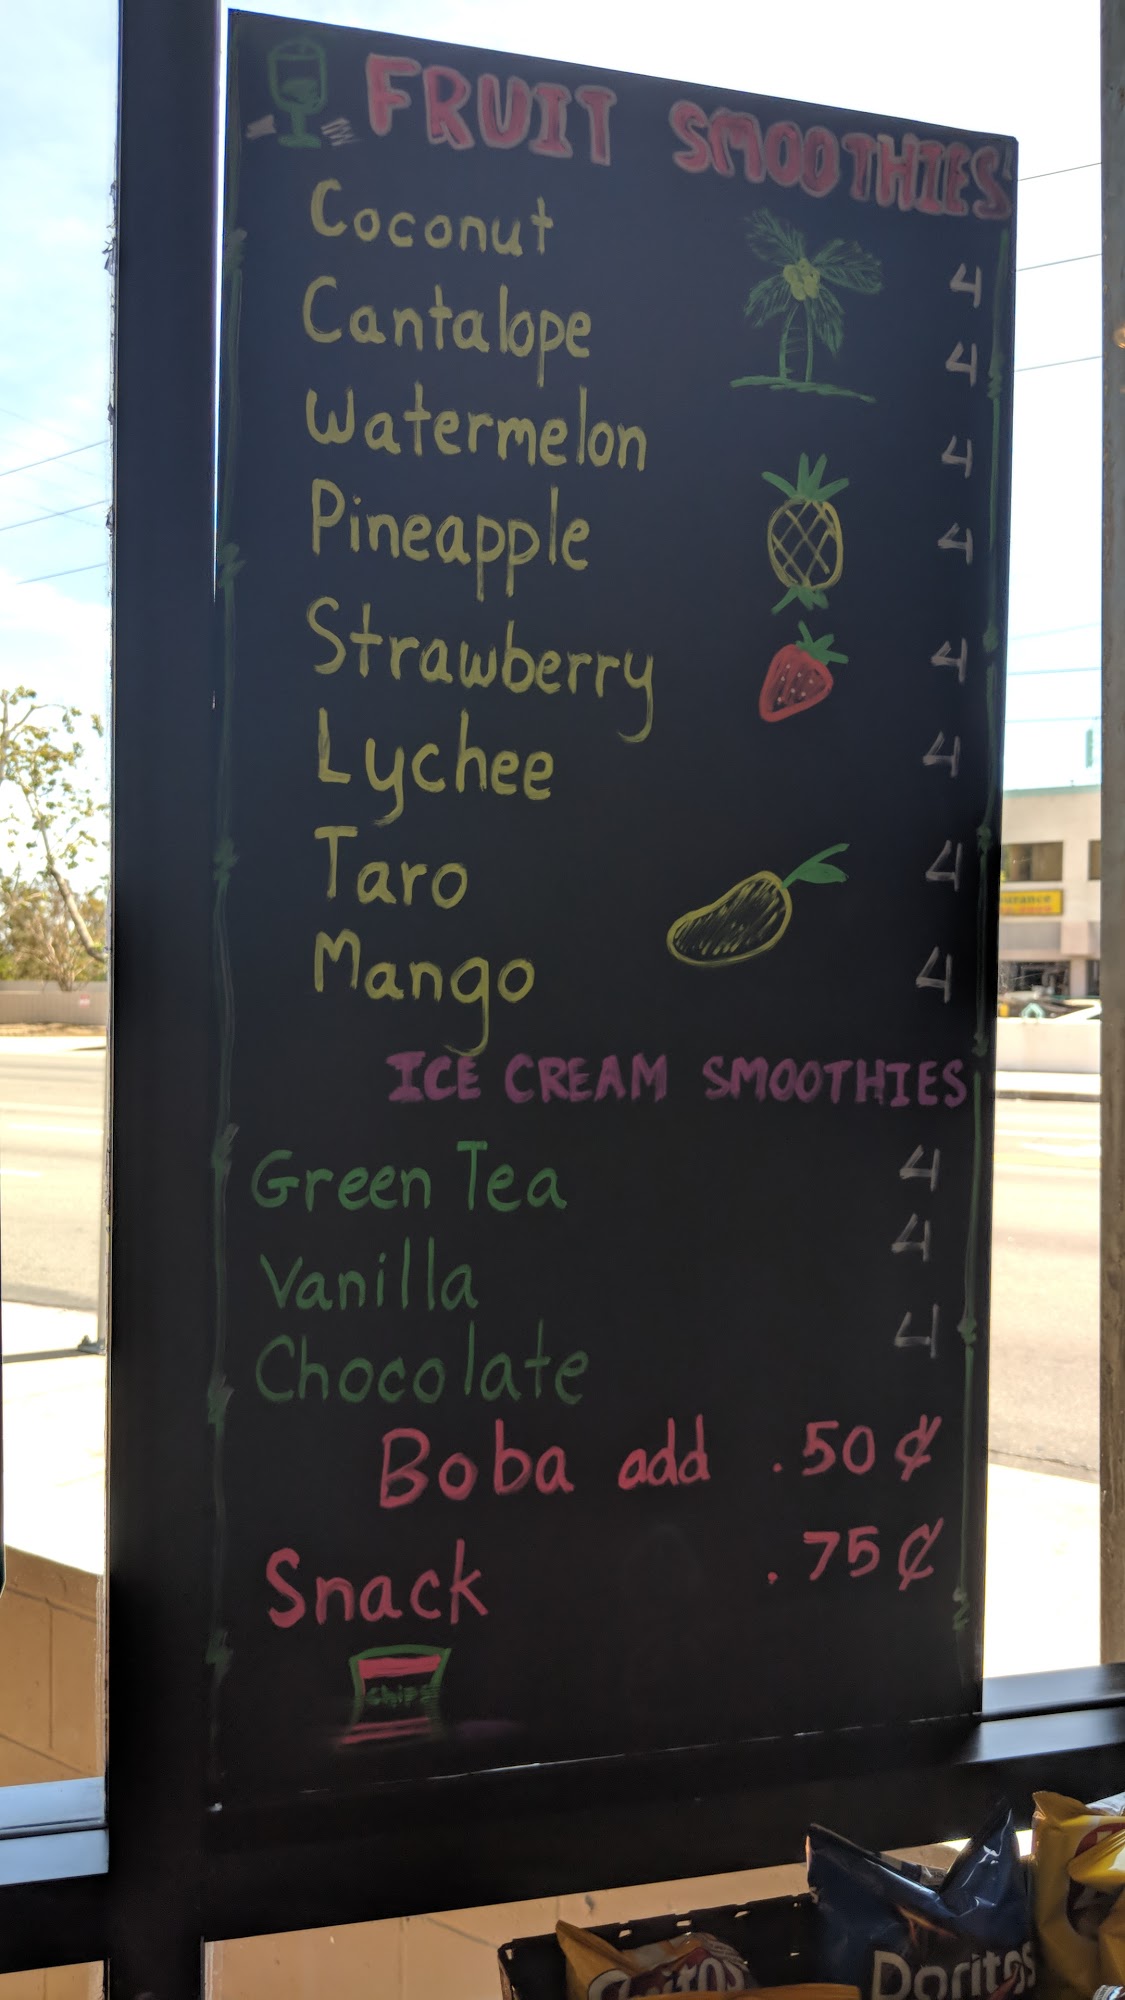 FRUIT SMOOTHIES
Coconut 4
Cantalope 4
Watermelon 4
Pineapple 4
Strawberry 4
Lychee 4
Taro 4
Mango 4
ICE CREAM SMOOTHIES
Green Tea 4
Vanilla 4
Chocolate 4
Boba add .50¢
Snack .75¢
chips
urance
Doritos